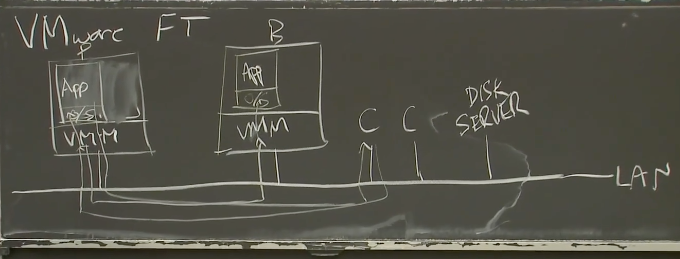 VMware FT
B
App
O/S
VMM
App
O/S
VMM
C
C
DISK
SERVER
LAN